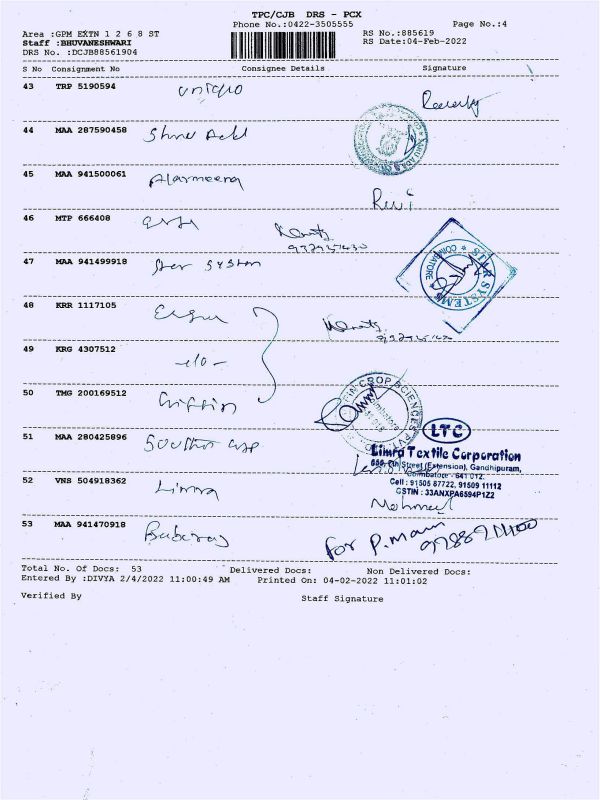 TPC/CJB DRS - PCX
Phone No.:0422-3505555 Page No.:4
Area :GPM EXTN 1 2 6 8 ST RS No.:885619
Staff :BHUVANESHWARI RS Date:04-Feb-2022
DRS No. :DCJB88561904
S No Consignment No Consignee Details Signature
43 TRP 5190594 unique
44 MAA 287590458
45 MAA 941500061
Ravi
46 MTP 666408
47 MAA 941499918 Star System
STAR SYSTEMS COIMBATORE
48 KRR 1117105
49 KRG 4307512 -do-
50 TMG 200169512 Griffin
CROP SCIENCES
51 MAA 280425896
LTC
Limra Textile Corporation
Street (Extension), Gandhipuram,
Coimbatore - 641 012.
Cell : 91505 87722, 91509 11112
GSTIN : 33ANXPA6594P1Z2
52 VNS 504918362 Limra
53 MAA 941470918
for P. Mani
Total No. Of Docs: 53 Delivered Docs: Non Delivered Docs:
Entered By :DIVYA 2/4/2022 11:00:49 AM Printed On: 04-02-2022 11:01:02
Verified By Staff Signature